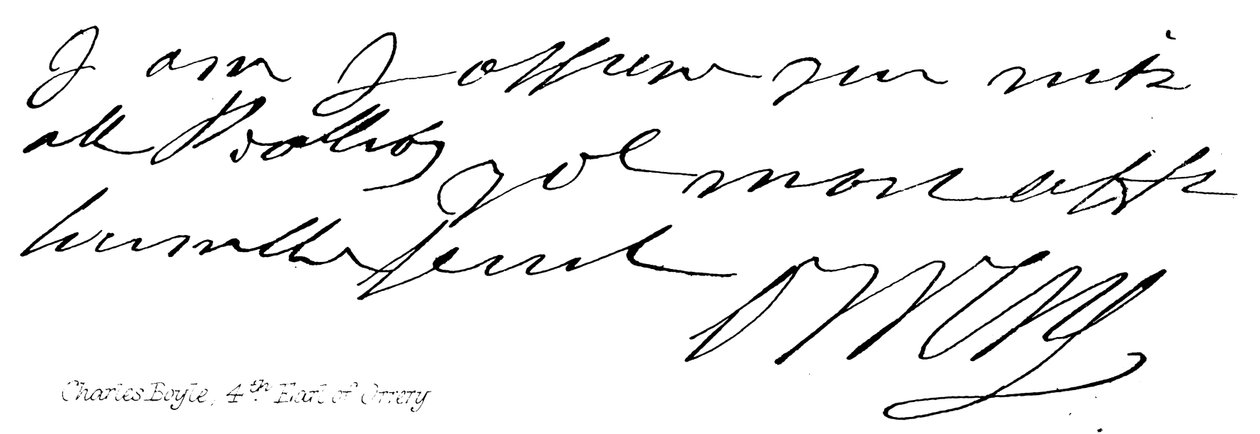 I am I assure you with
all Reallity yor most affte
humble servt
Orrery
Charles Boyle, 4th Earl of Orrery